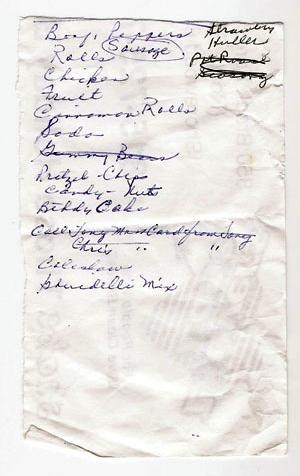 Peppers
Sausage
Rolls
Chicken
Fruit
Cinnamon Rolls
Soda
Gummy Bears
Pretzel - Chips
Candy - Nuts
B-tday Cake
Call Tony Mass Card from Tony
Chris " "
Coleslaw
Ghiradelli Mix
Strawberry
Huller
Pot Roast
Seasong